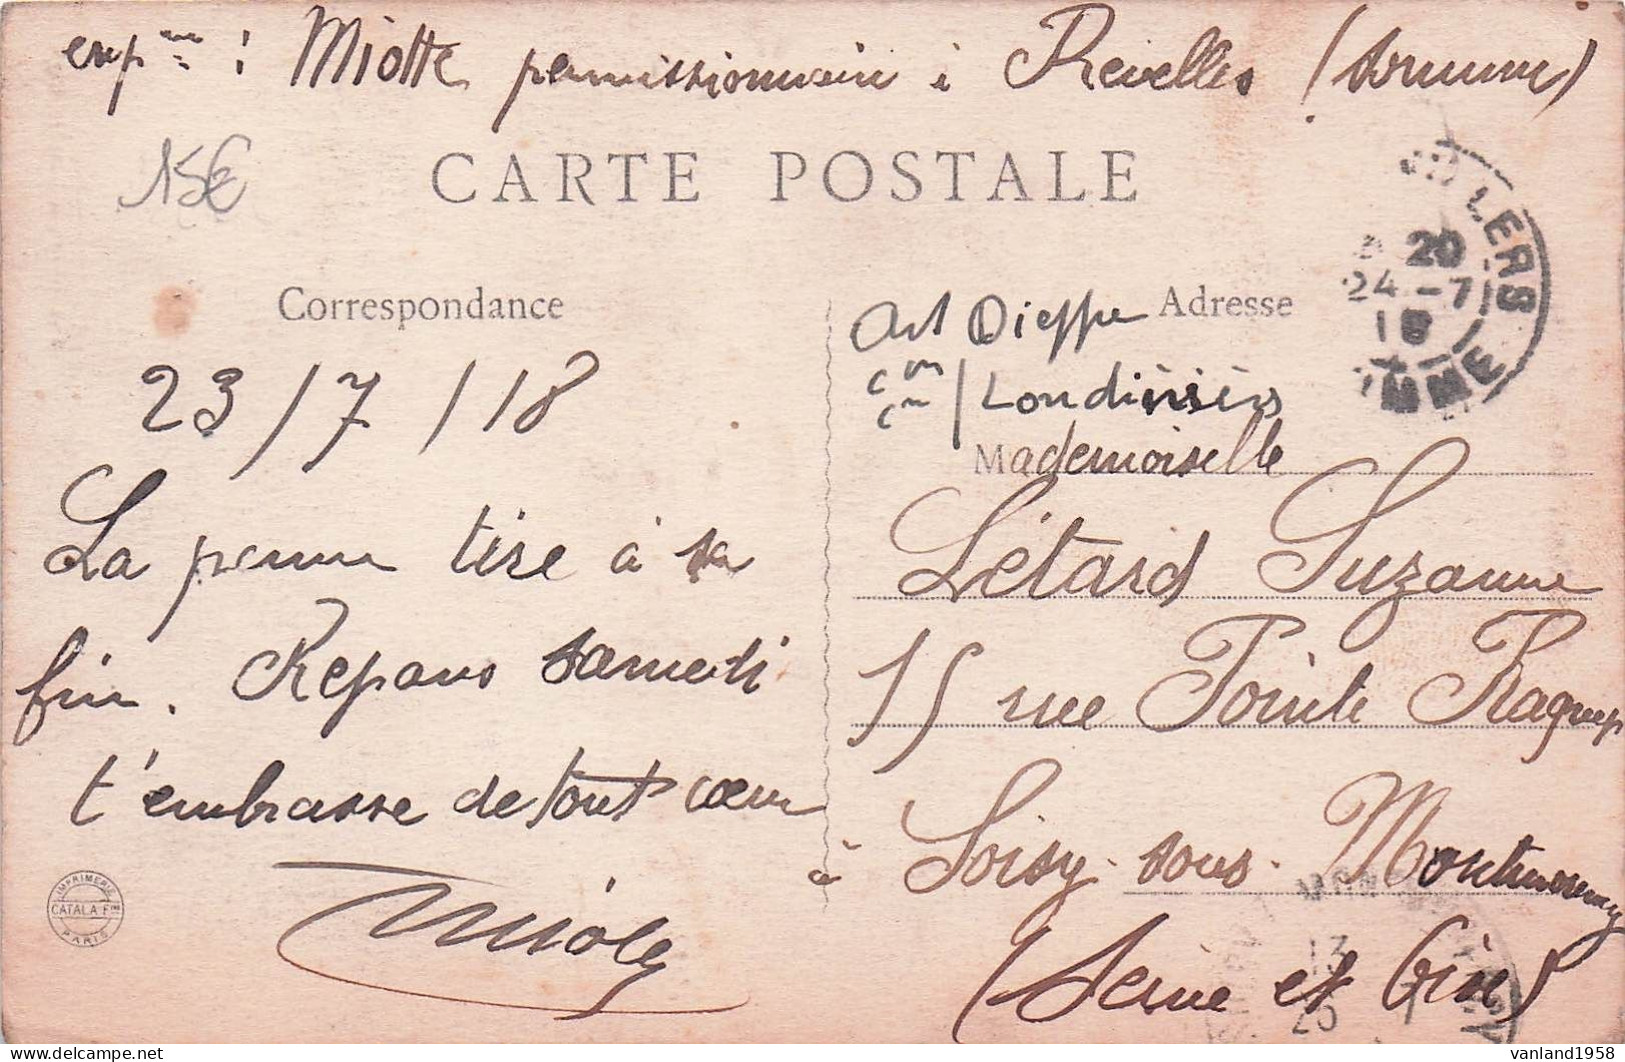 Miotte permissionnaire à Revelles (Somme)
15€
CARTE POSTALE
Correspondance
Adresse
LERS
20
24-7
18
MME
Art Dieppe
Con / Londinières
23/7/18
Mademoiselle
La perme tire à sa
Létard Suzanne
fin. Repars samedi
15 rue Pointe Raquet
t'embrasse de tout cœur
à Soisy-sous-Montmorency
(Seine et Oise)
IMPRIMERIE
CATALA Fres
PARIS
13
25
vanland1958